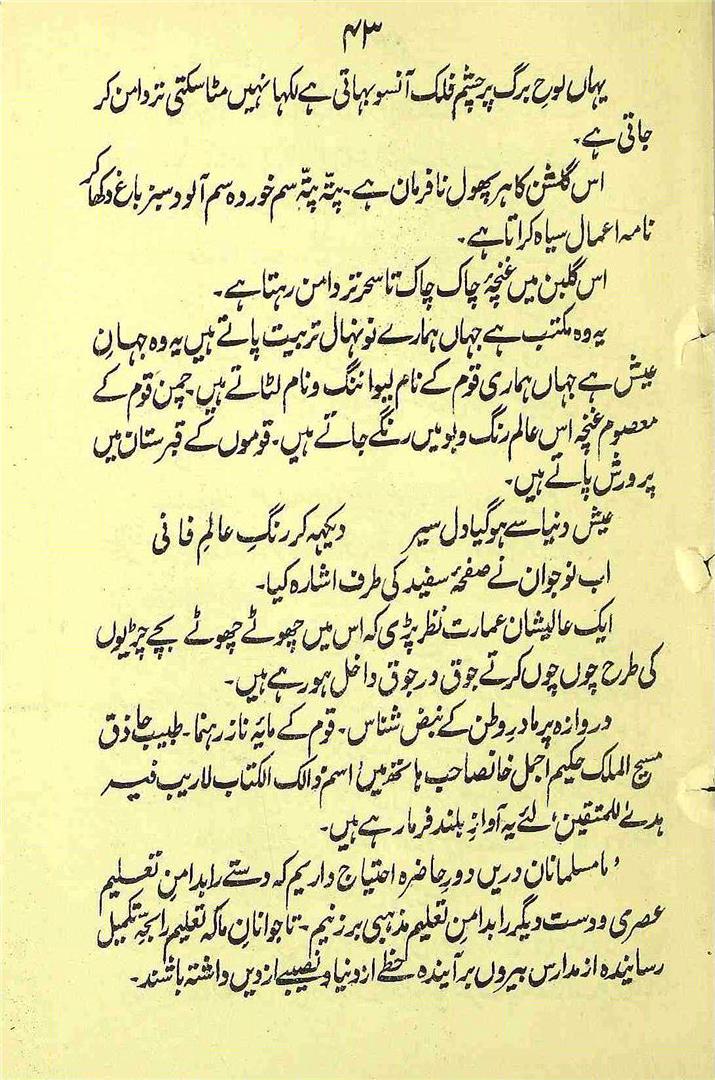 ۴۳
یہاں لوحِ برگ پر چشم فلک آنسو بہاتی ہے لکہا نہیں مٹا سکتی تر دامن کر
جاتی ہے۔
اس گلشن کا ہر پھول نافرمان ہے۔ پتّہ پتّہ سم خوردہ سم آلود سبز باغ دکھا کر
نامہ اعمال سیاہ کراتا ہے۔
اس گلبن میں غنچۂ چاک چاک تا سحر تر دامن رہتا ہے۔
یہ وہ مکتب ہے جہاں ہمارے نونہال تربیت پاتے ہیں یہ وہ جہانِ
عیش ہے جہاں ہماری قوم کے نام لیوا ننگ و نام لٹاتے ہیں۔ چمنِ قوم کے
معصوم غنچہ اس عالم رنگ و بو میں رنگے جاتے ہیں۔ قوموں کے قبرستان میں
پرورش پاتے ہیں۔
عیش دنیا سے ہو گیا دل سیر دیکہہ کر رنگِ عالمِ فانی
اب نوجوان نے صفحۂ سفید کی طرف اشارہ کیا۔
ایک عالیشان عمارت نظر پڑی کہ اس میں چھوٹے چھوٹے بچے چڑیوں
کی طرح چوں چوں کرتے جوق در جوق داخل ہو رہے ہیں۔
دروازہ پر مادرِ وطن کے نبض شناس۔ قوم کے مایۂ ناز رہنما۔ طبیب حاذق
مسیح الملک حکیم اجمل خانصاحب ہاتھ میں اسم ذالک الکتاب لاریب فیہ
ہدیٰ للمتقین، لئے یہ آوازِ بلند فرما رہے ہیں۔
'ما مسلمانان دریں دورِ حاضرہ احتیاج داریم کہ دستے را بدامنِ تعلیم
عصری و دست دیگر را بدامنِ تعلیم مذہبی بر زنیم۔ تا جوانانِ ما کہ تعلیم رابحد تکمیل
رسانیدہ از مدارس بیروں برآیندہ حظے از دنیا و نصیبے از دیں داشتہ باشند۔